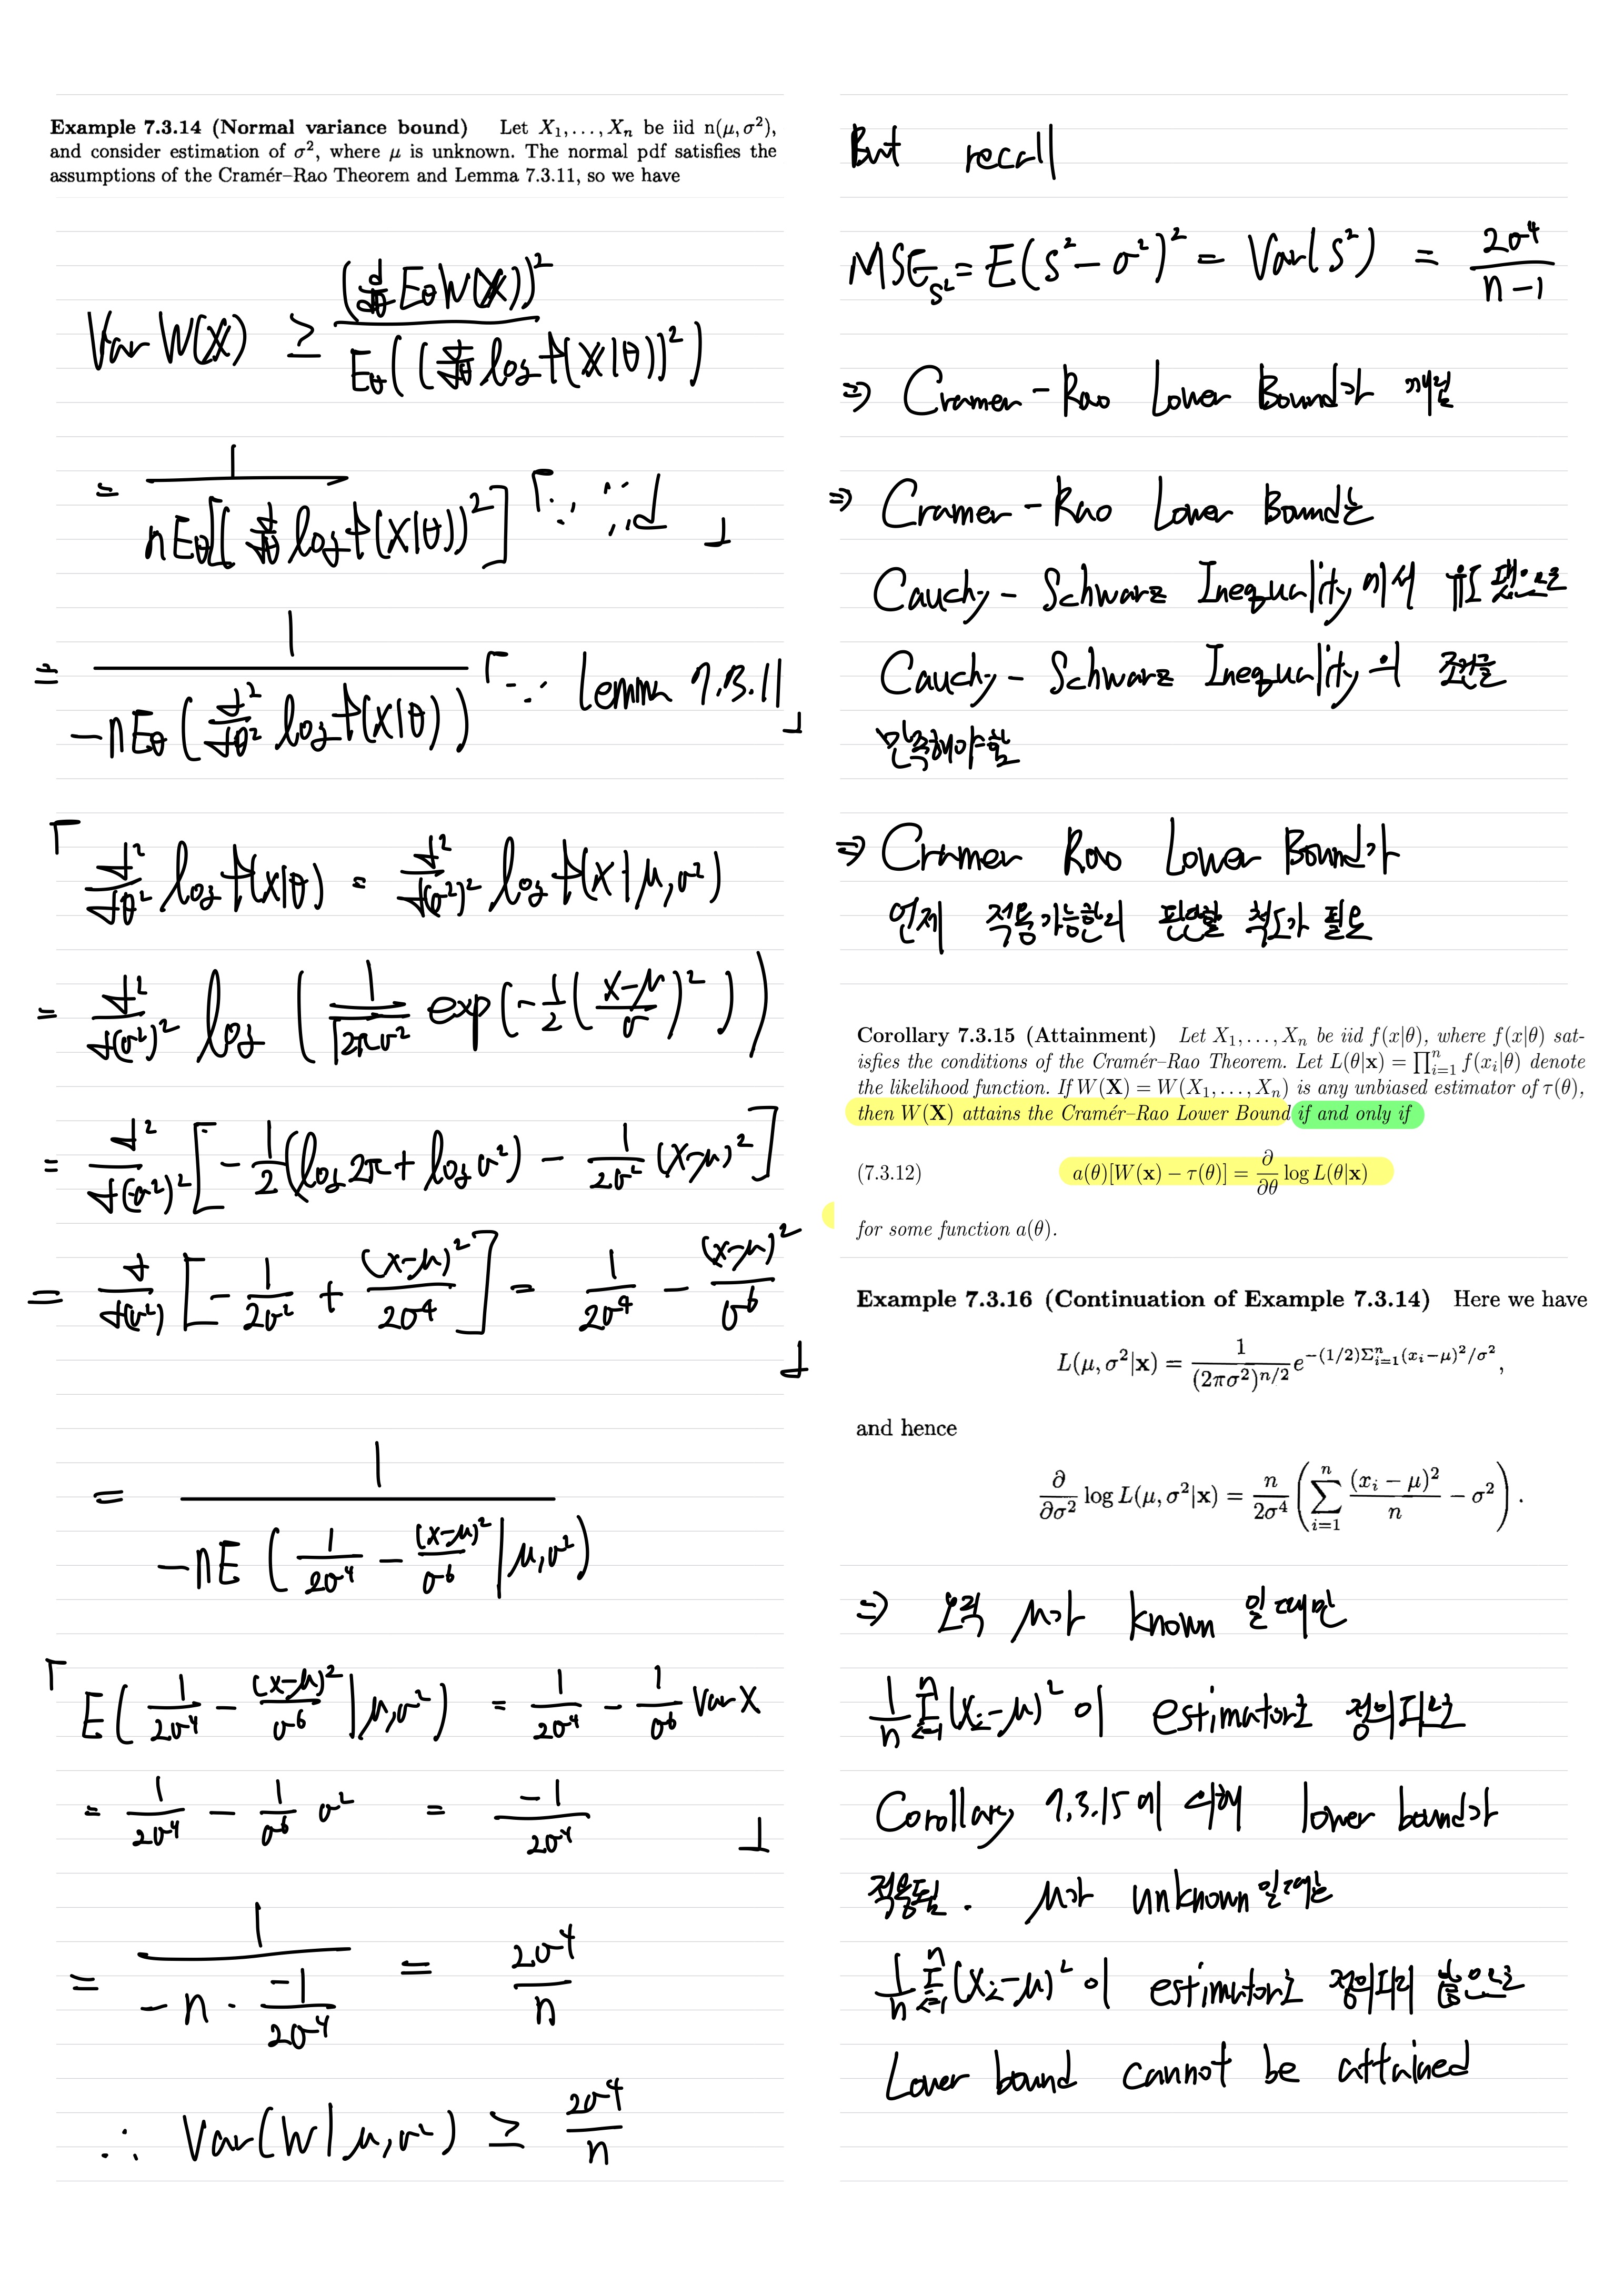 Example 7.3.14 (Normal variance bound) Let X₁, . . . , Xₙ be iid n(μ, σ²),
and consider estimation of σ², where μ is unknown. The normal pdf satisfies the
assumptions of the Cramér–Rao Theorem and Lemma 7.3.11, so we have
Var W(X) ≥ (d/dθ E_θ W(X))² / E_θ((d/dθ log f(X|θ))²)
= 1 / nE_θ[(d/dθ log f(X|θ))²] 「∵ iid 」
= 1 / −nE_θ(d²/dθ² log f(X|θ)) 「∵ Lemma 7.3.11 」
「 d²/dθ² log f(x|θ) = d²/d(σ²)² log f(x|μ,σ²)
= d²/d(σ²)² log (1/√(2πσ²) exp(−1/2((x−μ)/σ)²))
= d²/d(σ²)² [−1/2(log 2π + log σ²) − 1/(2σ²) (x−μ)²]
= d/d(σ²) [−1/(2σ²) + (x−μ)²/(2σ⁴)] = 1/(2σ⁴) − (x−μ)²/σ⁶ 」
= 1 / −nE(1/(2σ⁴) − (x−μ)²/σ⁶ | μ,σ²)
「 E(1/(2σ⁴) − (x−μ)²/σ⁶ | μ,σ²) = 1/(2σ⁴) − 1/σ⁶ Var X
= 1/(2σ⁴) − 1/σ⁶ σ² = −1/(2σ⁴) 」
= 1 / (−n · −1/(2σ⁴)) = 2σ⁴/n
∴ Var(W|μ,σ²) ≥ 2σ⁴/n
But recall
MSE_S² = E(S² − σ²)² = Var(S²) = 2σ⁴/(n−1)
⇒ Cramer-Rao Lower Bound가 깨짐
⇒ Cramer-Rao Lower Bound는
Cauchy-Schwarz Inequality에서 유도 됐으므로
Cauchy-Schwarz Inequality의 조건을
만족해야함
⇒ Cramer Rao Lower Bound가
언제 적용가능한지 판단할 척도가 필요
Corollary 7.3.15 (Attainment) Let X₁, . . . , Xₙ be iid f(x|θ), where f(x|θ) sat-
isfies the conditions of the Cramér–Rao Theorem. Let L(θ|x) = ∏ⁿᵢ₌₁ f(xᵢ|θ) denote
the likelihood function. If W(X) = W(X₁, . . . , Xₙ) is any unbiased estimator of τ(θ),
then W(X) attains the Cramér–Rao Lower Bound if and only if
(7.3.12) a(θ)[W(x) − τ(θ)] = ∂/∂θ log L(θ|x)
for some function a(θ).
Example 7.3.16 (Continuation of Example 7.3.14) Here we have
L(μ, σ²|x) = 1/(2πσ²)^{n/2} e^{−(1/2)Σⁿᵢ₌₁(xᵢ−μ)²/σ²},
and hence
∂/∂σ² log L(μ, σ²|x) = n/(2σ⁴) (Σⁿᵢ₌₁ (xᵢ − μ)²/n − σ²).
⇒ 오직 μ가 known 일때만
1/n Σⁿᵢ₌₁(xᵢ−μ)² 이 estimator로 정의되므로
Corollary 7.3.15에 의해 lower bound가
적용됨. μ가 unknown일때는
1/n Σⁿᵢ₌₁(xᵢ−μ)² 이 estimator로 정의되지 않으므로
Lower bound cannot be attained